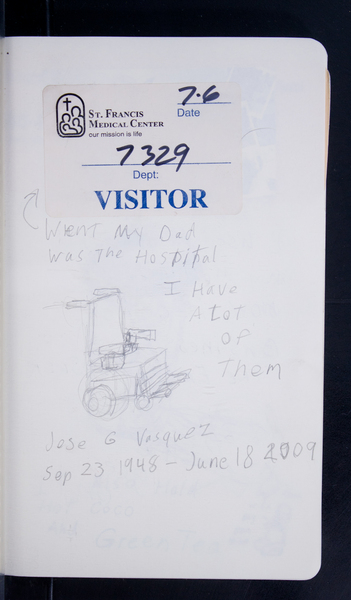 7·6
St. Francis
Medical Center
our mission is life
Date
7329
Dept:
VISITOR
Went My Dad
was The Hospital
I Have
A Lot
Of
Them
Jose G Vasquez
Sep 23 1948 – June 18 2009